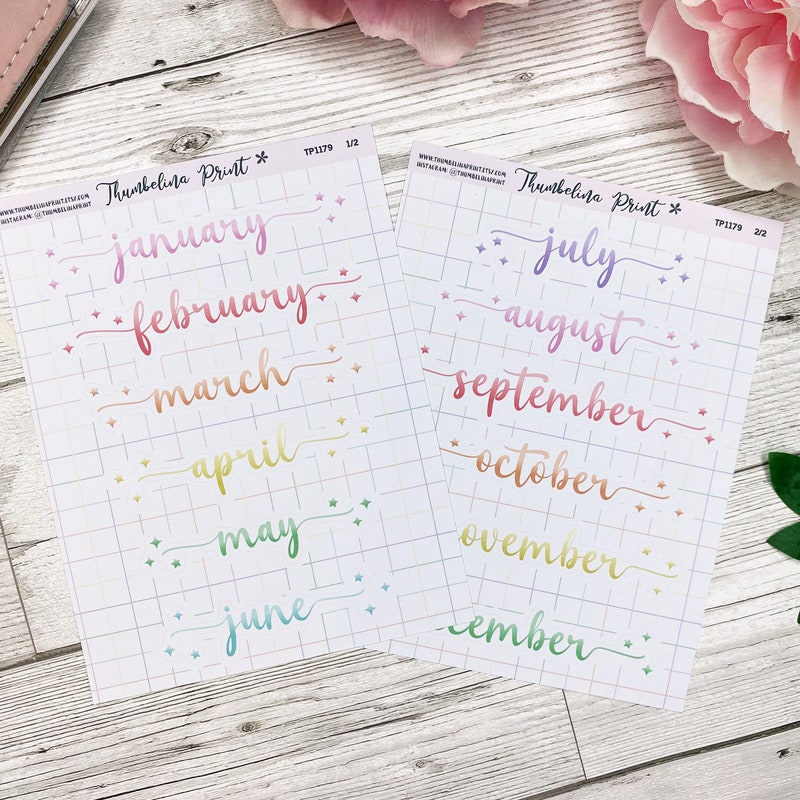 WWW.THUMBELINAPRINT.ETSY.COM
INSTAGRAM: @THUMBELINAPRINT
Thumbelina Print
TP1179 1/2
january
february
march
april
may
june
WWW.THUMBELINAPRINT.ETSY.COM
INSTAGRAM: @THUMBELINAPRINT
Thumbelina Print
TP1179 2/2
july
august
september
october
ovember
ember